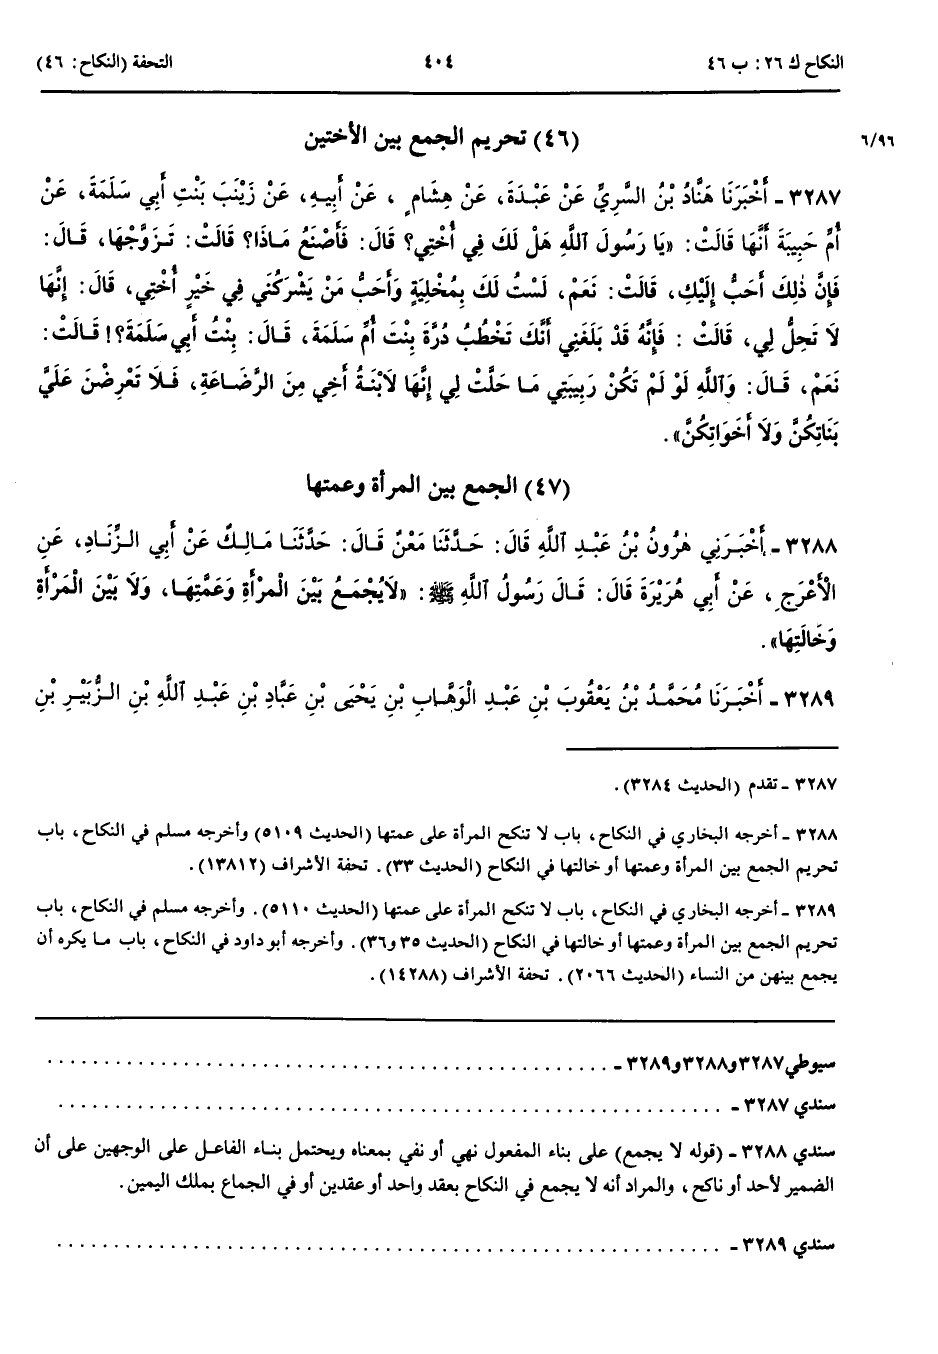 النكاح ك ٢٦: ب ٤٦ ٤٠٤ التحفة (النكاح: ٤٦)
٦/٩٦ (٤٦) تحريم الجمع بين الأختين
٣٢٨٧ - أَخْبَرَنَا هَنَّادُ بْنُ السَّرِيِّ عَنْ عَبْدَةَ، عَنْ هِشَامٍ، عَنْ أَبِيهِ، عَنْ زَيْنَبَ بَنْتِ أَبِي سَلَمَةَ، عَنْ
أُمِّ حَبِيبَةَ أَنَّهَا قَالَتْ: «يَا رَسُولَ اللَّهِ هَلْ لَكَ فِي أُخْتِي؟ قَالَ: فَأَصْنَعُ مَاذَا؟ قَالَتْ: تَزَوَّجْهَا، قَالَ:
فَإِنَّ ذٰلِكَ أَحَبُّ إِلَيْكِ، قَالَتْ: نَعَمْ، لَسْتُ لَكَ بِمُخْلِيَةٍ وَأَحَبُّ مَنْ يَشْرَكُنِي فِي خَيْرٍ أُخْتِي، قَالَ: إِنَّهَا
لَا تَحِلُّ لِي، قَالَتْ: فَإِنَّهُ قَدْ بَلَغَنِي أَنَّكَ تَخْطُبُ دُرَّةَ بِنْتَ أُمِّ سَلَمَةَ، قَالَ: بِنْتُ أَبِي سَلَمَةَ؟! قَالَتْ:
نَعَمْ، قَالَ: وَاللَّهِ لَوْ لَمْ تَكُنْ رَبِيبَتِي مَا حَلَّتْ لِي إِنَّهَا لَابْنَةُ أَخِي مِنَ الرَّضَاعَةِ، فَلَا تَعْرِضْنَ عَلَيَّ
بَنَاتِكُنَّ وَلَا أَخَوَاتِكُنَّ».
(٤٧) الجمع بين المرأة وعمتها
٣٢٨٨ - أَخْبَرَنِي هٰرُونُ بْنُ عَبْدِ اللَّهِ قَالَ: حَدَّثَنَا مَعْنٌ قَالَ: حَدَّثَنَا مَالِكٌ عَنْ أَبِي الزِّنَادِ، عَنِ
الْأَعْرَجِ، عَنْ أَبِي هُرَيْرَةَ قَالَ: قَالَ رَسُولُ اللَّهِ ﷺ: «لَا يُجْمَعُ بَيْنَ الْمَرْأَةِ وَعَمَّتِهَا، وَلَا بَيْنَ الْمَرْأَةِ
وَخَالَتِهَا».
٣٢٨٩ - أَخْبَرَنَا مُحَمَّدُ بْنُ يَعْقُوبَ بْنِ عَبْدِ الْوَهَّابِ بْنِ يَحْيَى بْنِ عَبَّادِ بْنِ عَبْدِ اللَّهِ بْنِ الزُّبَيْرِ بْنِ
٣٢٨٧ - تقدم (الحديث ٣٢٨٤).
٣٢٨٨ - أخرجه البخاري في النكاح، باب لا تنكح المرأة على عمتها (الحديث ٥١٠٩) وأخرجه مسلم في النكاح، باب
تحريم الجمع بين المرأة وعمتها أو خالتها في النكاح (الحديث ٣٣). تحفة الأشراف (١٣٨١٢).
٣٢٨٩ - أخرجه البخاري في النكاح، باب لا تنكح المرأة على عمتها (الحديث ٥١١٠). وأخرجه مسلم في النكاح، باب
تحريم الجمع بين المرأة وعمتها أو خالتها في النكاح (الحديث ٣٥ و٣٦). وأخرجه أبو داود في النكاح، باب ما يكره أن
يجمع بينهن من النساء (الحديث ٢٠٦٦). تحفة الأشراف (١٤٢٨٨).
سيوطي ٣٢٨٧ و٣٢٨٨ و٣٢٨٩ - ..........
سندي ٣٢٨٧ - ..........
سندي ٣٢٨٨ - (قوله لا يجمع) على بناء المفعول نهي أو نفي بمعناه ويحتمل بناء الفاعل على الوجهين على أن
الضمير لأحد أو ناكح، والمراد أنه لا يجمع في النكاح بعقد واحد أو عقدين أو في الجماع بملك اليمين.
سندي ٣٢٨٩ - ..........